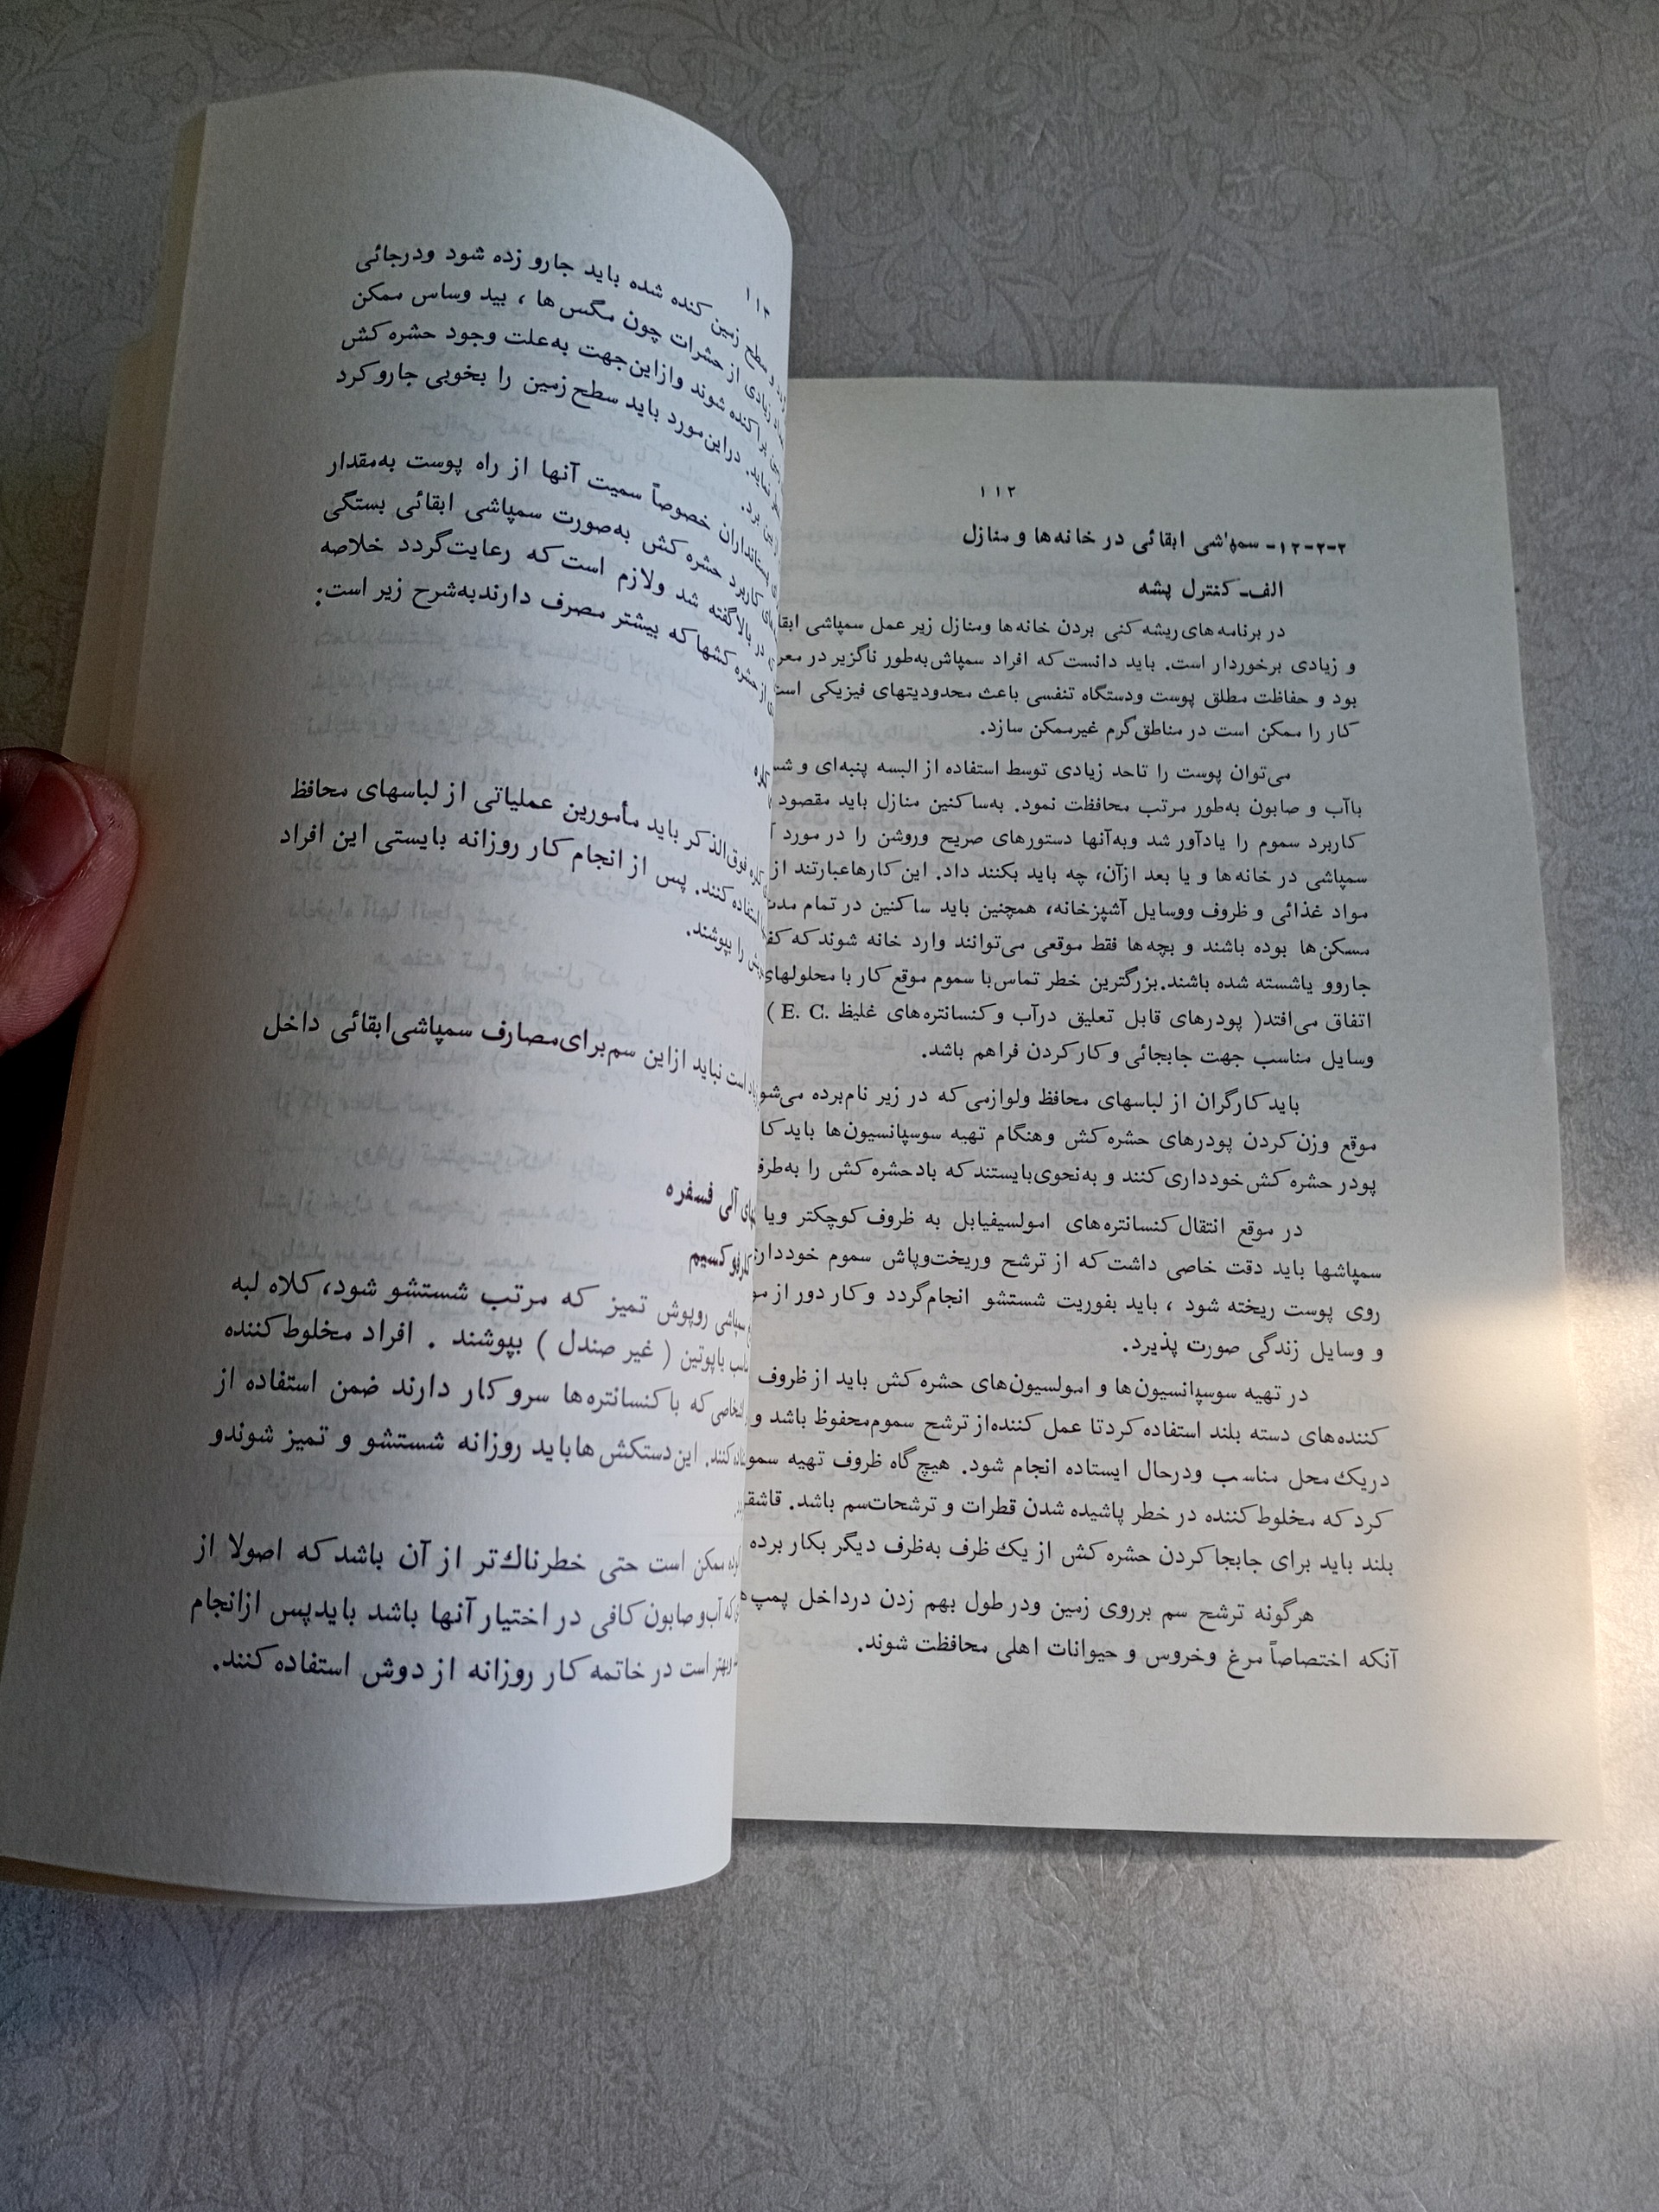 ۱۱۲
۲-۲-۱۲- سمپاشی ابقائی در خانه‌ها و منازل
الف- کنترل پشه
در برنامه‌های ریشه کنی بردن خانه‌ها ومنازل زیر عمل سمپاشی
و زیادی برخوردار است. باید دانست که افراد سمپاش به‌طور ناگزیر در
بود و حفاظت مطلق پوست ودستگاه تنفسی باعث محدودیتهای فیزیکی
کار را ممکن است در مناطق گرم غیرممکن سازد.
می‌توان پوست را تاحد زیادی توسط استفاده از البسه پنبه‌ای و
باآب و صابون به‌طور مرتب محافظت نمود. به‌ساکنین منازل باید مقصود
کاربرد سموم را یادآور شد وبه‌آنها دستورهای صریح وروشن را در مورد
سمپاشی در خانه‌ها و یا بعد ازآن، چه باید بکنند داد. این کارها عبارتند از
مواد غذائی و ظروف ووسایل آشپزخانه، همچنین باید ساکنین در تمام
مسکن‌ها بوده باشند و بچه‌ها فقط موقعی می‌توانند وارد خانه شوند که
جاروو یاشسته شده باشند. بزرگترین خطر تماس با سموم موقع کار با محلولهای
اتفاق می‌افتد( پودرهای قابل تعلیق درآب و کنسانتره‌های غلیظ E. C. )
وسایل مناسب جهت جابجائی و کارکردن فراهم باشد.
باید کارگران از لباسهای محافظ ولوازمی که در زیر نام‌برده
موقع وزن کردن پودرهای حشره کش وهنگام تهیه سوسپانسیون‌ها باید
پودر حشره کش خودداری کنند و به‌نحوی بایستند که بادحشره کش را
در موقع انتقال کنسانتره‌های امولسیفیابل به ظروف کوچکتر ویا
سمپاشها باید دقت خاصی داشت که از ترشح وریخت‌وپاش سموم
روی پوست ریخته شود ، باید بفوریت شستشو انجام گردد و کار دور از
و وسایل زندگی صورت پذیرد.
در تهیه سوسپانسیون‌ها و امولسیون‌های حشره کش باید از ظروف
کننده‌های دسته بلند استفاده کردتا عمل کننده‌از ترشح سموم محفوظ باشد و
دریك محل مناسب ودرحال ایستاده انجام شود. هیچ گاه ظروف تهیه
کرد که مخلوط کننده در خطر پاشیده شدن قطرات و ترشحات‌سم باشد.
بلند باید برای جابجا کردن حشره کش از یك ظرف به‌ظرف دیگر بکار برده
هرگونه ترشح سم برروی زمین ودر طول بهم زدن درداخل
آنکه اختصاصاً مرغ وخروس و حیوانات اهلی محافظت شوند.
سطح زمین کنده شده باید جارو زده شود ودرجائی
زیادی از حشرات چون مگس‌ها ، بید وساس ممکن
پراکنده شوند وازاین‌جهت به‌علت وجود حشره کش
نماید. دراین‌مورد باید سطح زمین را بخوبی جارو کرد
بین برد.
پستانداران خصوصاً سمیت آنها از راه پوست به‌مقدار
کاربرد حشره کش به‌صورت سمپاشی ابقائی بستگی
در بالا گفته شد ولازم است که رعایت گردد خلاصه
از حشره کشها که بیشتر مصرف دارند به‌شرح زیر است:
فوق‌الذکر باید مأمورین عملیاتی از لباسهای محافظ
استفاده کنند. پس از انجام کار روزانه بایستی این افراد
را بپوشند.
است نباید ازاین سم برای مصارف سمپاشی ابقائی داخل
آلی فسفره
سمپاشی روپوش تمیز که مرتب شستشو شود، کلاه لبه
باپوتین ( غیر صندل ) بپوشند . افراد مخلوط کننده
که با کنسانتره‌ها سرو کار دارند ضمن استفاده از
کنند. این دستکش‌ها باید روزانه شستشو و تمیز شوندو
ممکن است حتی خطرناك‌تر از آن باشد که اصولا از
که آب و صابون کافی در اختیار آنها باشد بایدپس ازانجام
بهتر است در خاتمه کار روزانه از دوش استفاده کنند.